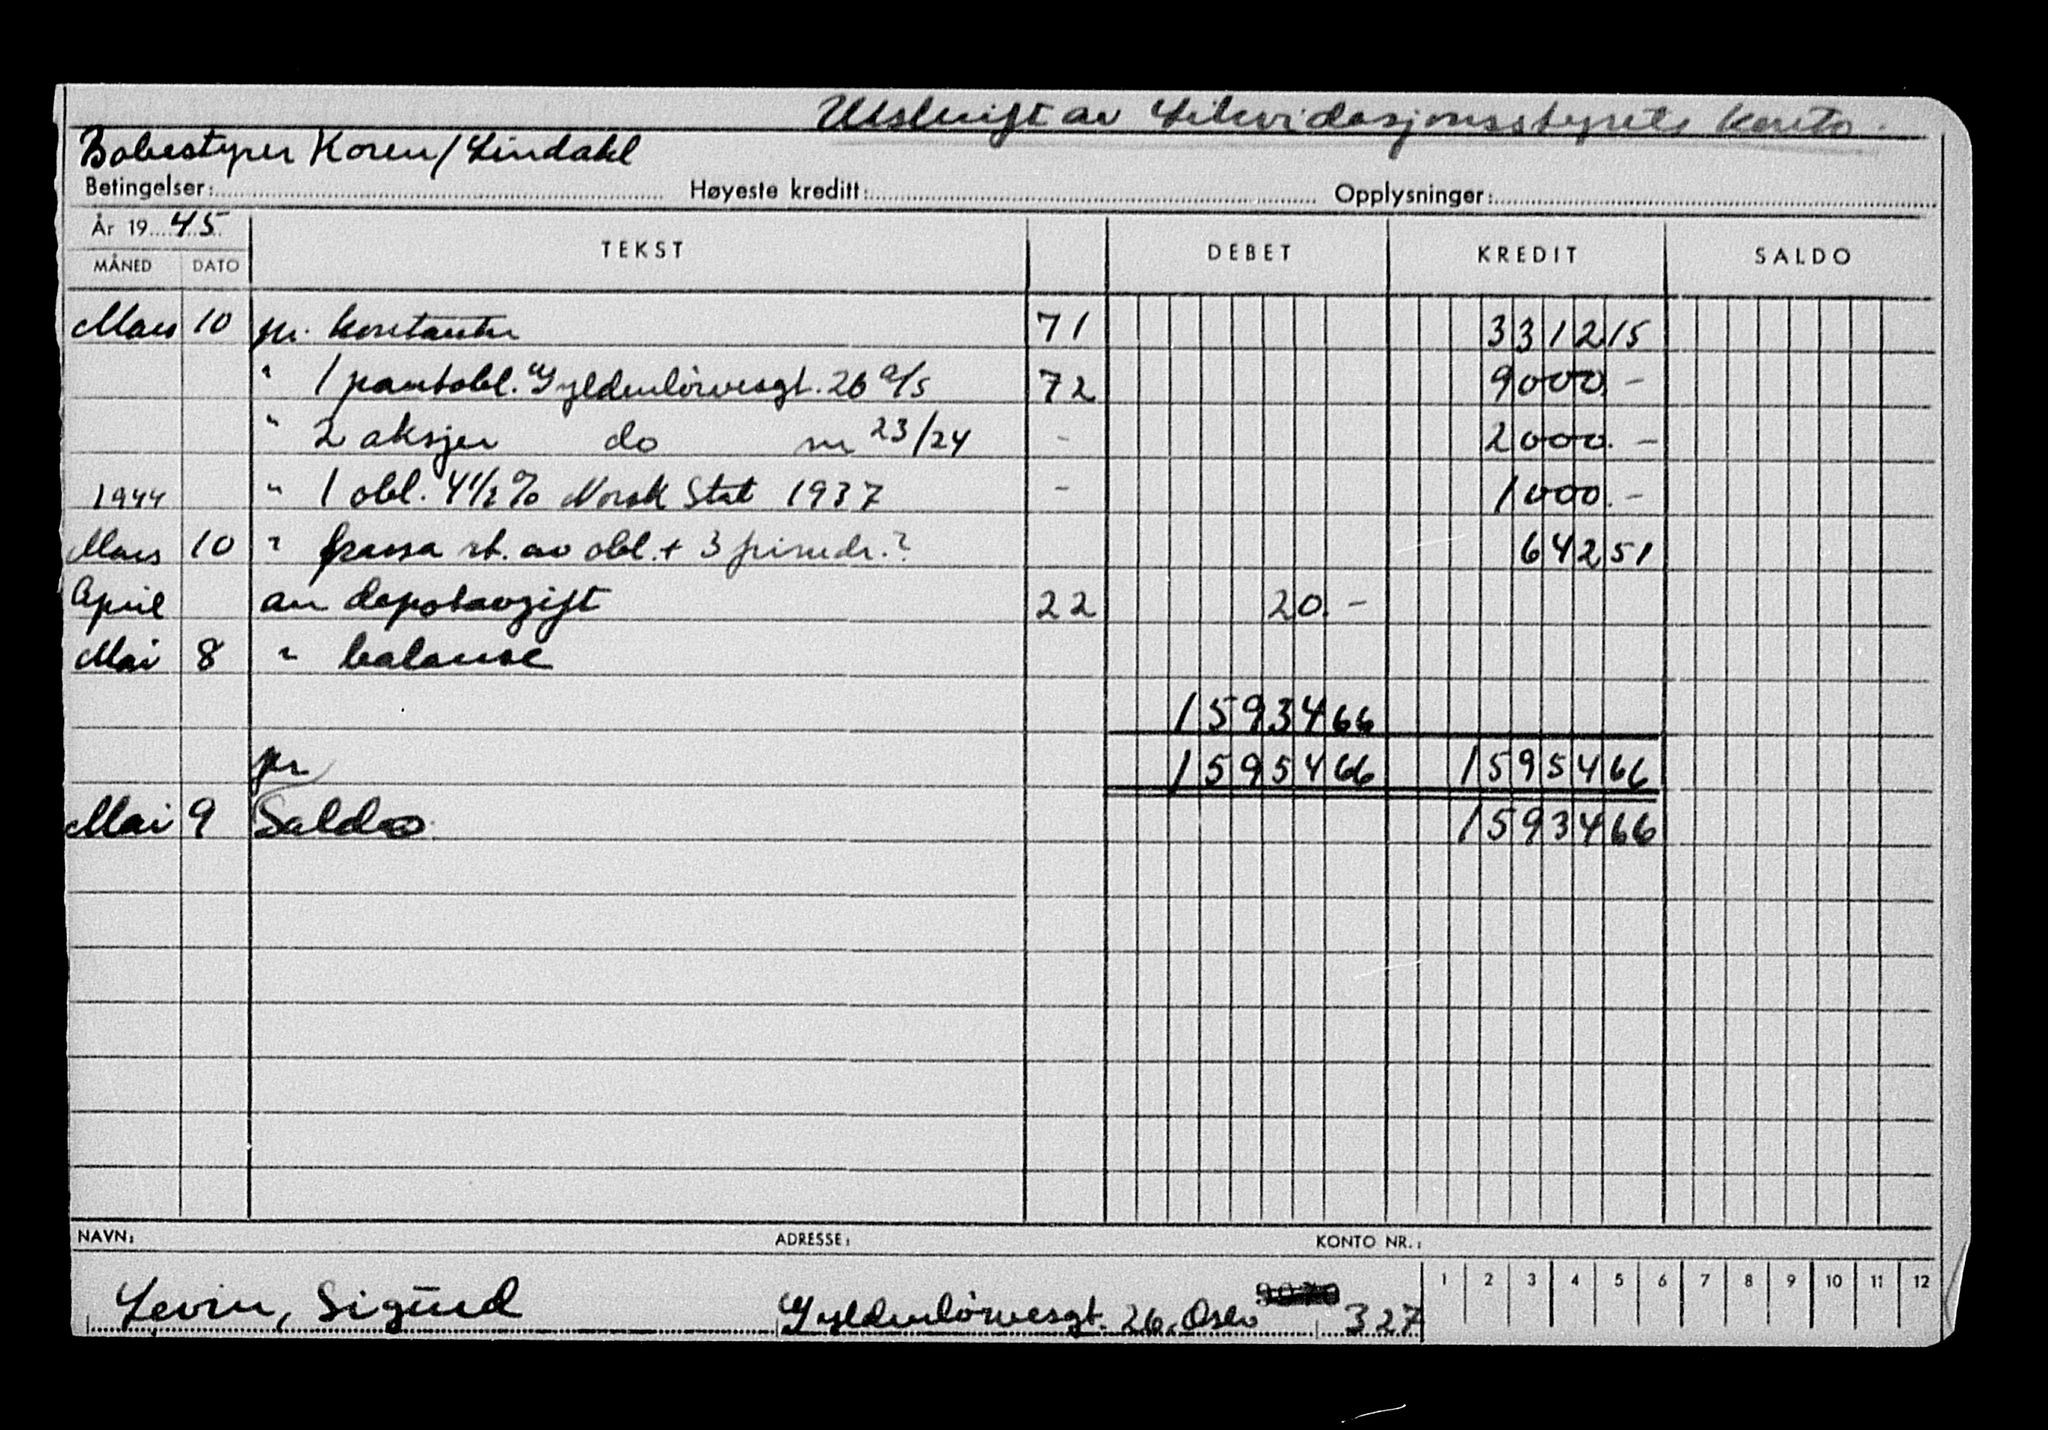 Utskrift av Likvidasjonsstyrets konto.
Bobestyrer Koren/Lindahl
Betingelser: Høyeste kreditt: Opplysninger:
År 1945 TEKST DEBET KREDIT SALDO
MÅNED DATO
Mars 10 pr. kontanter 71 3312 15
" 1 pantobl. Gyldenløvesgt. 26 a/s 72 9000. -
" 2 aksjer do nr 23/24 - 2000. -
1944 " 1 obl. 4 1/2 % Norsk Stat 1937 - 1000. -
Mars 10 " rt. av obl. + 3 ? 642 51
April an depotavgift 22 20. -
Mai 8 " balanse
15934 66
pr 15954 66 15954 66
Mai 9 Saldo 15934 66
NAVN: ADRESSE: KONTO NR.:
Levin, Sigurd Gyldenløvesgt. 26, Oslo 327 1 2 3 4 5 6 7 8 9 10 11 12